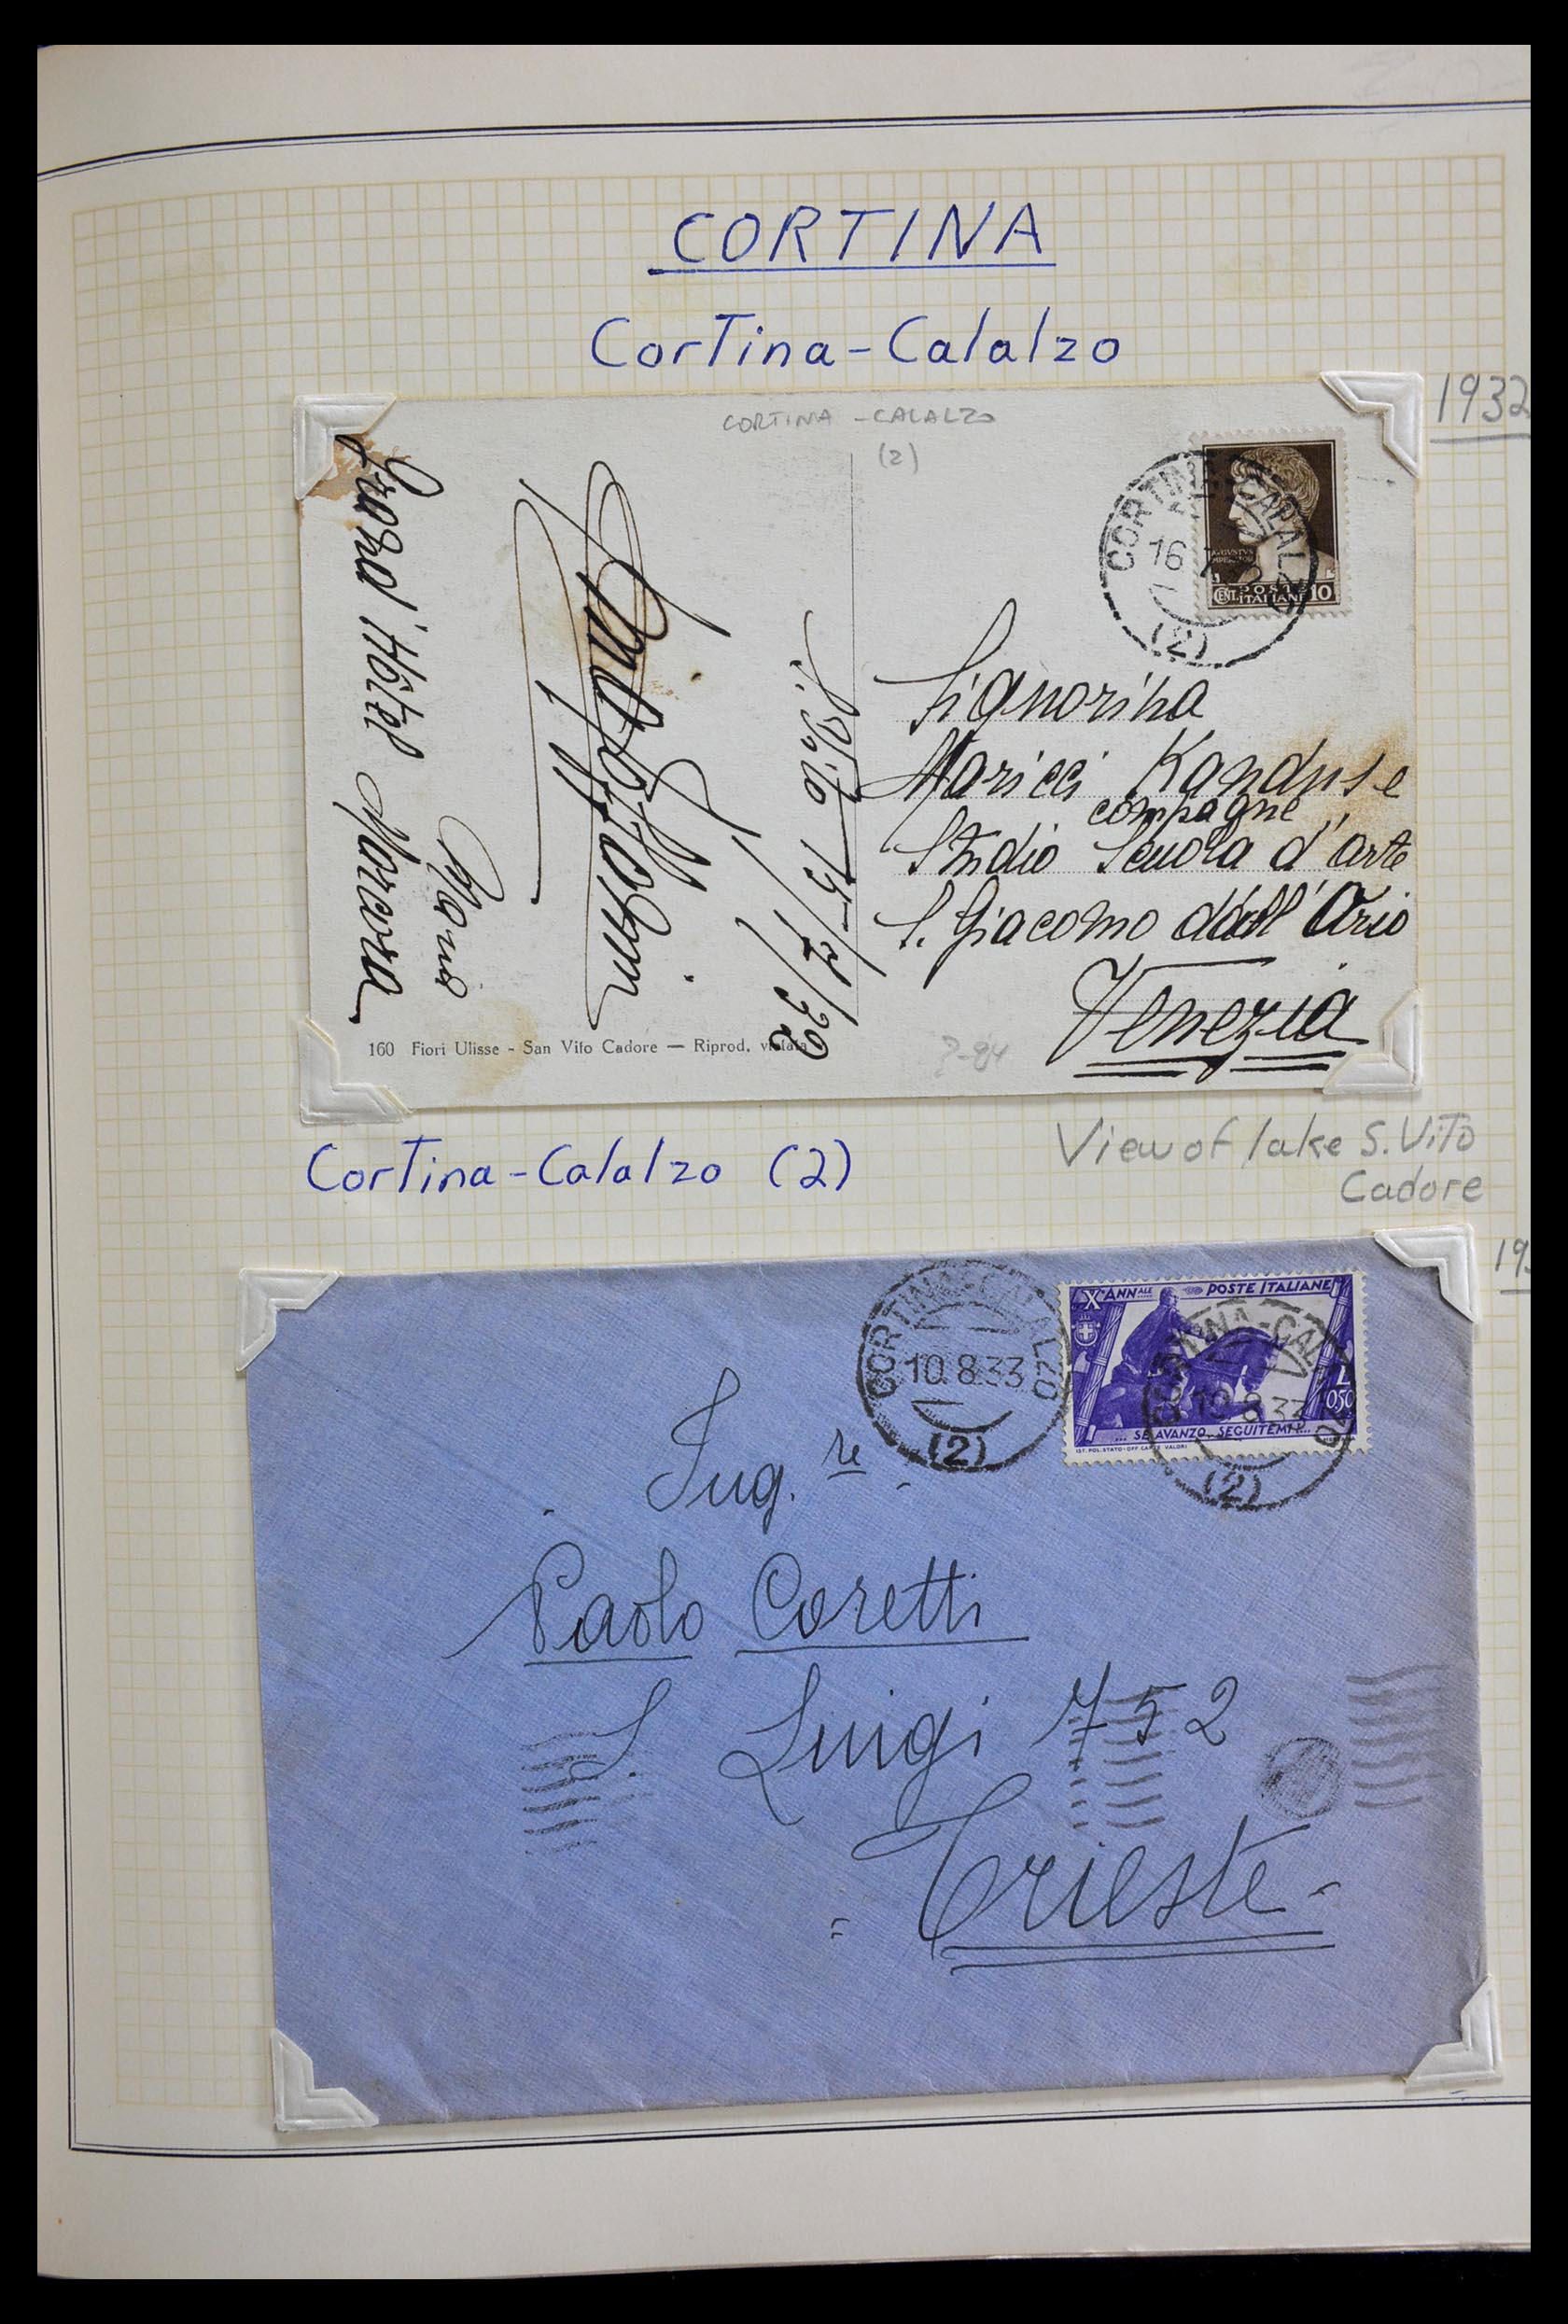 CORTINA
Cortina-Calalzo
1932
CORTINA - CALALZO
(2)
CORTINA-CALALZO
16 7
(2)
AVGVSTVS
CENT. POSTE ITALIANE 10
Signorina
Maricci Kanduse
compagne
Studio Scuola d'arte
S. Giacomo dall' Orio
Venezia
S. Vito 15/7/32
Grand Hôtel Marcora
160 Fiori Ulisse - San Vito Cadore — Riprod. vietata
?-84
View of lake S. Vito
Cadore
Cortina-Calalzo (2)
19
CORTINA-CALALZO
10.8.33
(2)
X° ANNALE POSTE ITALIANE
L 0,50
... SE AVANZO, SEGUITEMI...
IST. POL. STATO-OFF CARTE VALORI
CORTINA-CALALZO
10.8.33
(2)
Ing.re
Paolo Coretti
S. Luigi 752
Trieste